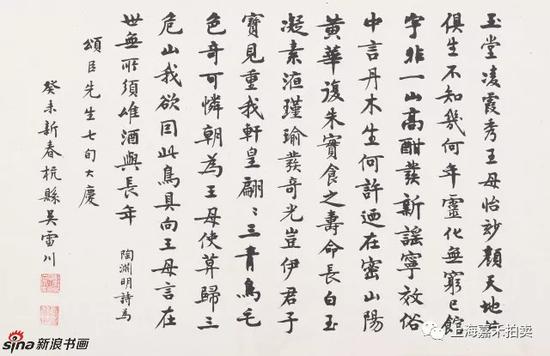 玉堂凌霞秀王母怡妙顏天地共
俱生不知幾何年靈化無窮已館
宇非一山高酣發新謠寧效俗
中言丹木生何許迺在密山陽
黃華復朱實食之壽命長白玉
凝素液瑾瑜發奇光豈伊君子
寶見重我軒皇翩〻三青鳥毛
色奇可憐朝為王母使莫歸三
危山我欲因此鳥具向王母言在
世無所須唯酒與長年 陶淵明詩為
頌臣先生七旬大慶
癸未新春杭縣吳雷川
sina新浪书画
上海嘉禾拍卖